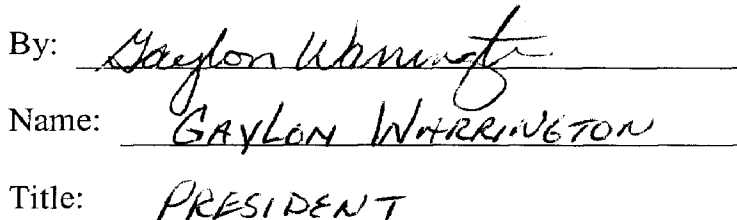 By: Gaylon Warrington
Name: GAYLON WARRINGTON
Title: PRESIDENT